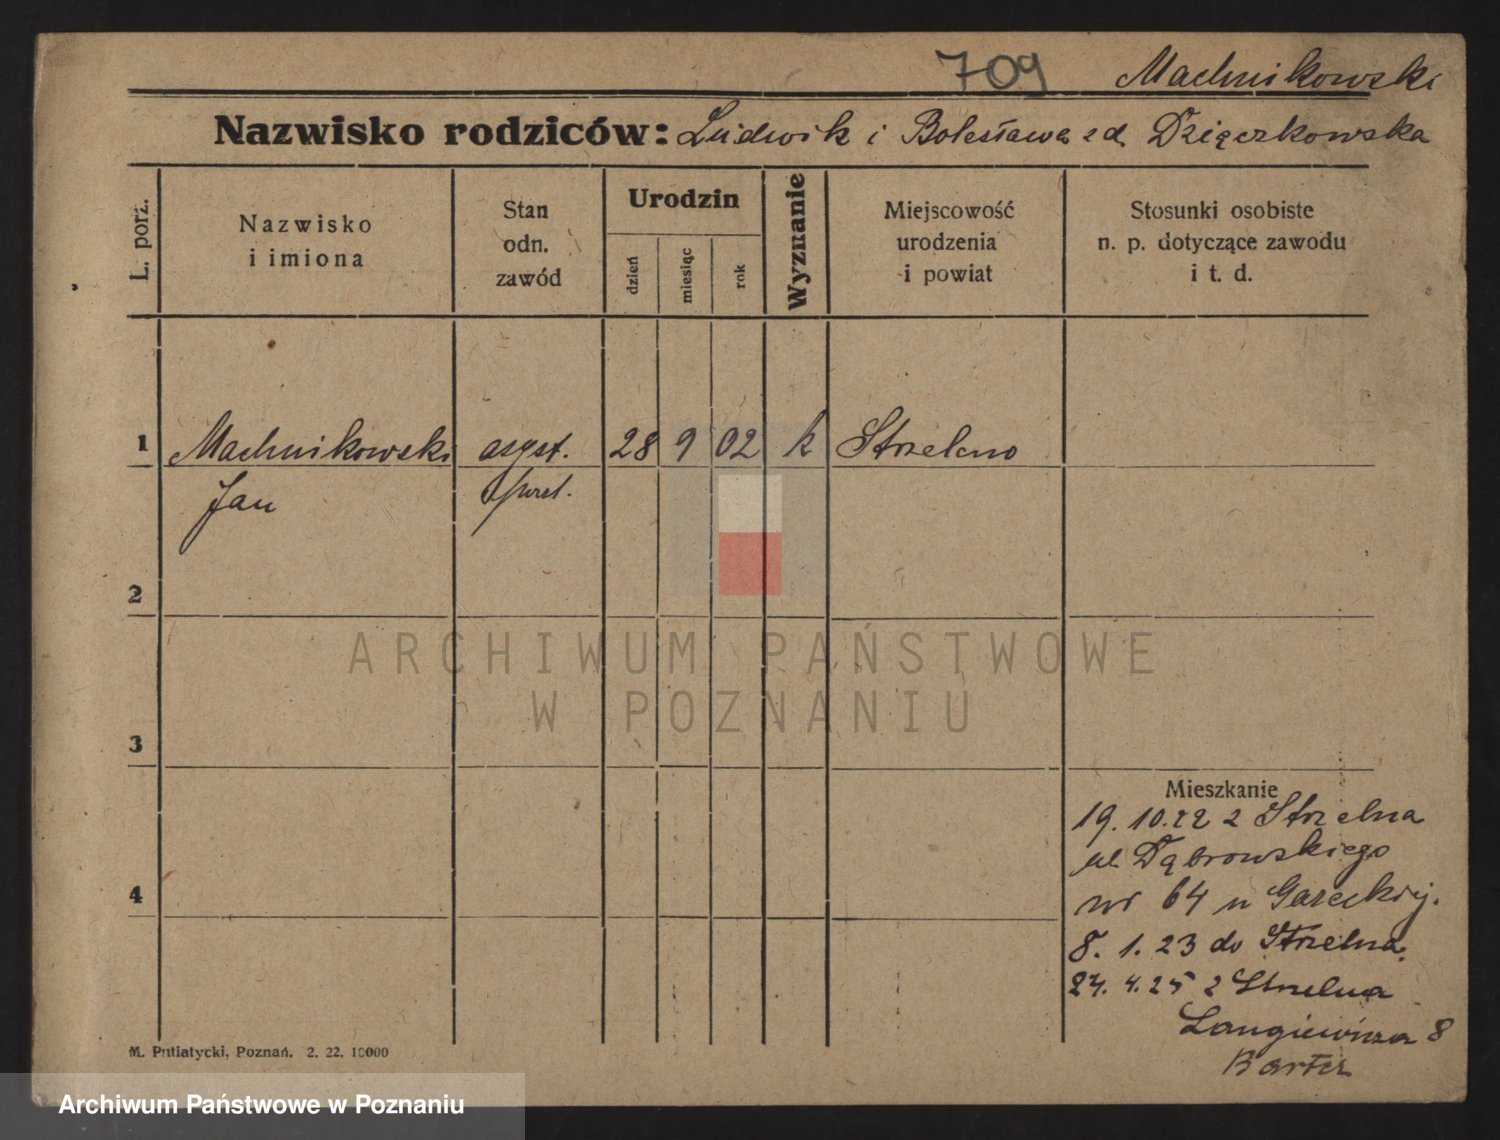 709 Machnikowski
Nazwisko rodziców: Ludwik i Bolesława zd. Dzięczkowska
L. porz.
Nazwisko
i imiona
Stan
odn.
zawód
Urodzin
dzień
miesiąc
rok
Wyznanie
Miejscowość
urodzenia
i powiat
Stosunki osobiste
n. p. dotyczące zawodu
i t. d.
1 Machnikowski asyst. 28 9 02 k Strzelno
Jan
2
ARCHIWUM PAŃSTWOWE
W POZNANIU
3
Mieszkanie
19. 10. 22 z Strzelna
ul. Dąbrowskiego
4
nr 64 u Gareckiej.
8. 1. 23 do Strzelna.
27. 4. 25 z Strzelna
Langiewicza 8
M. Putiatycki, Poznań. 2. 22. 10000
Archiwum Państwowe w Poznaniu